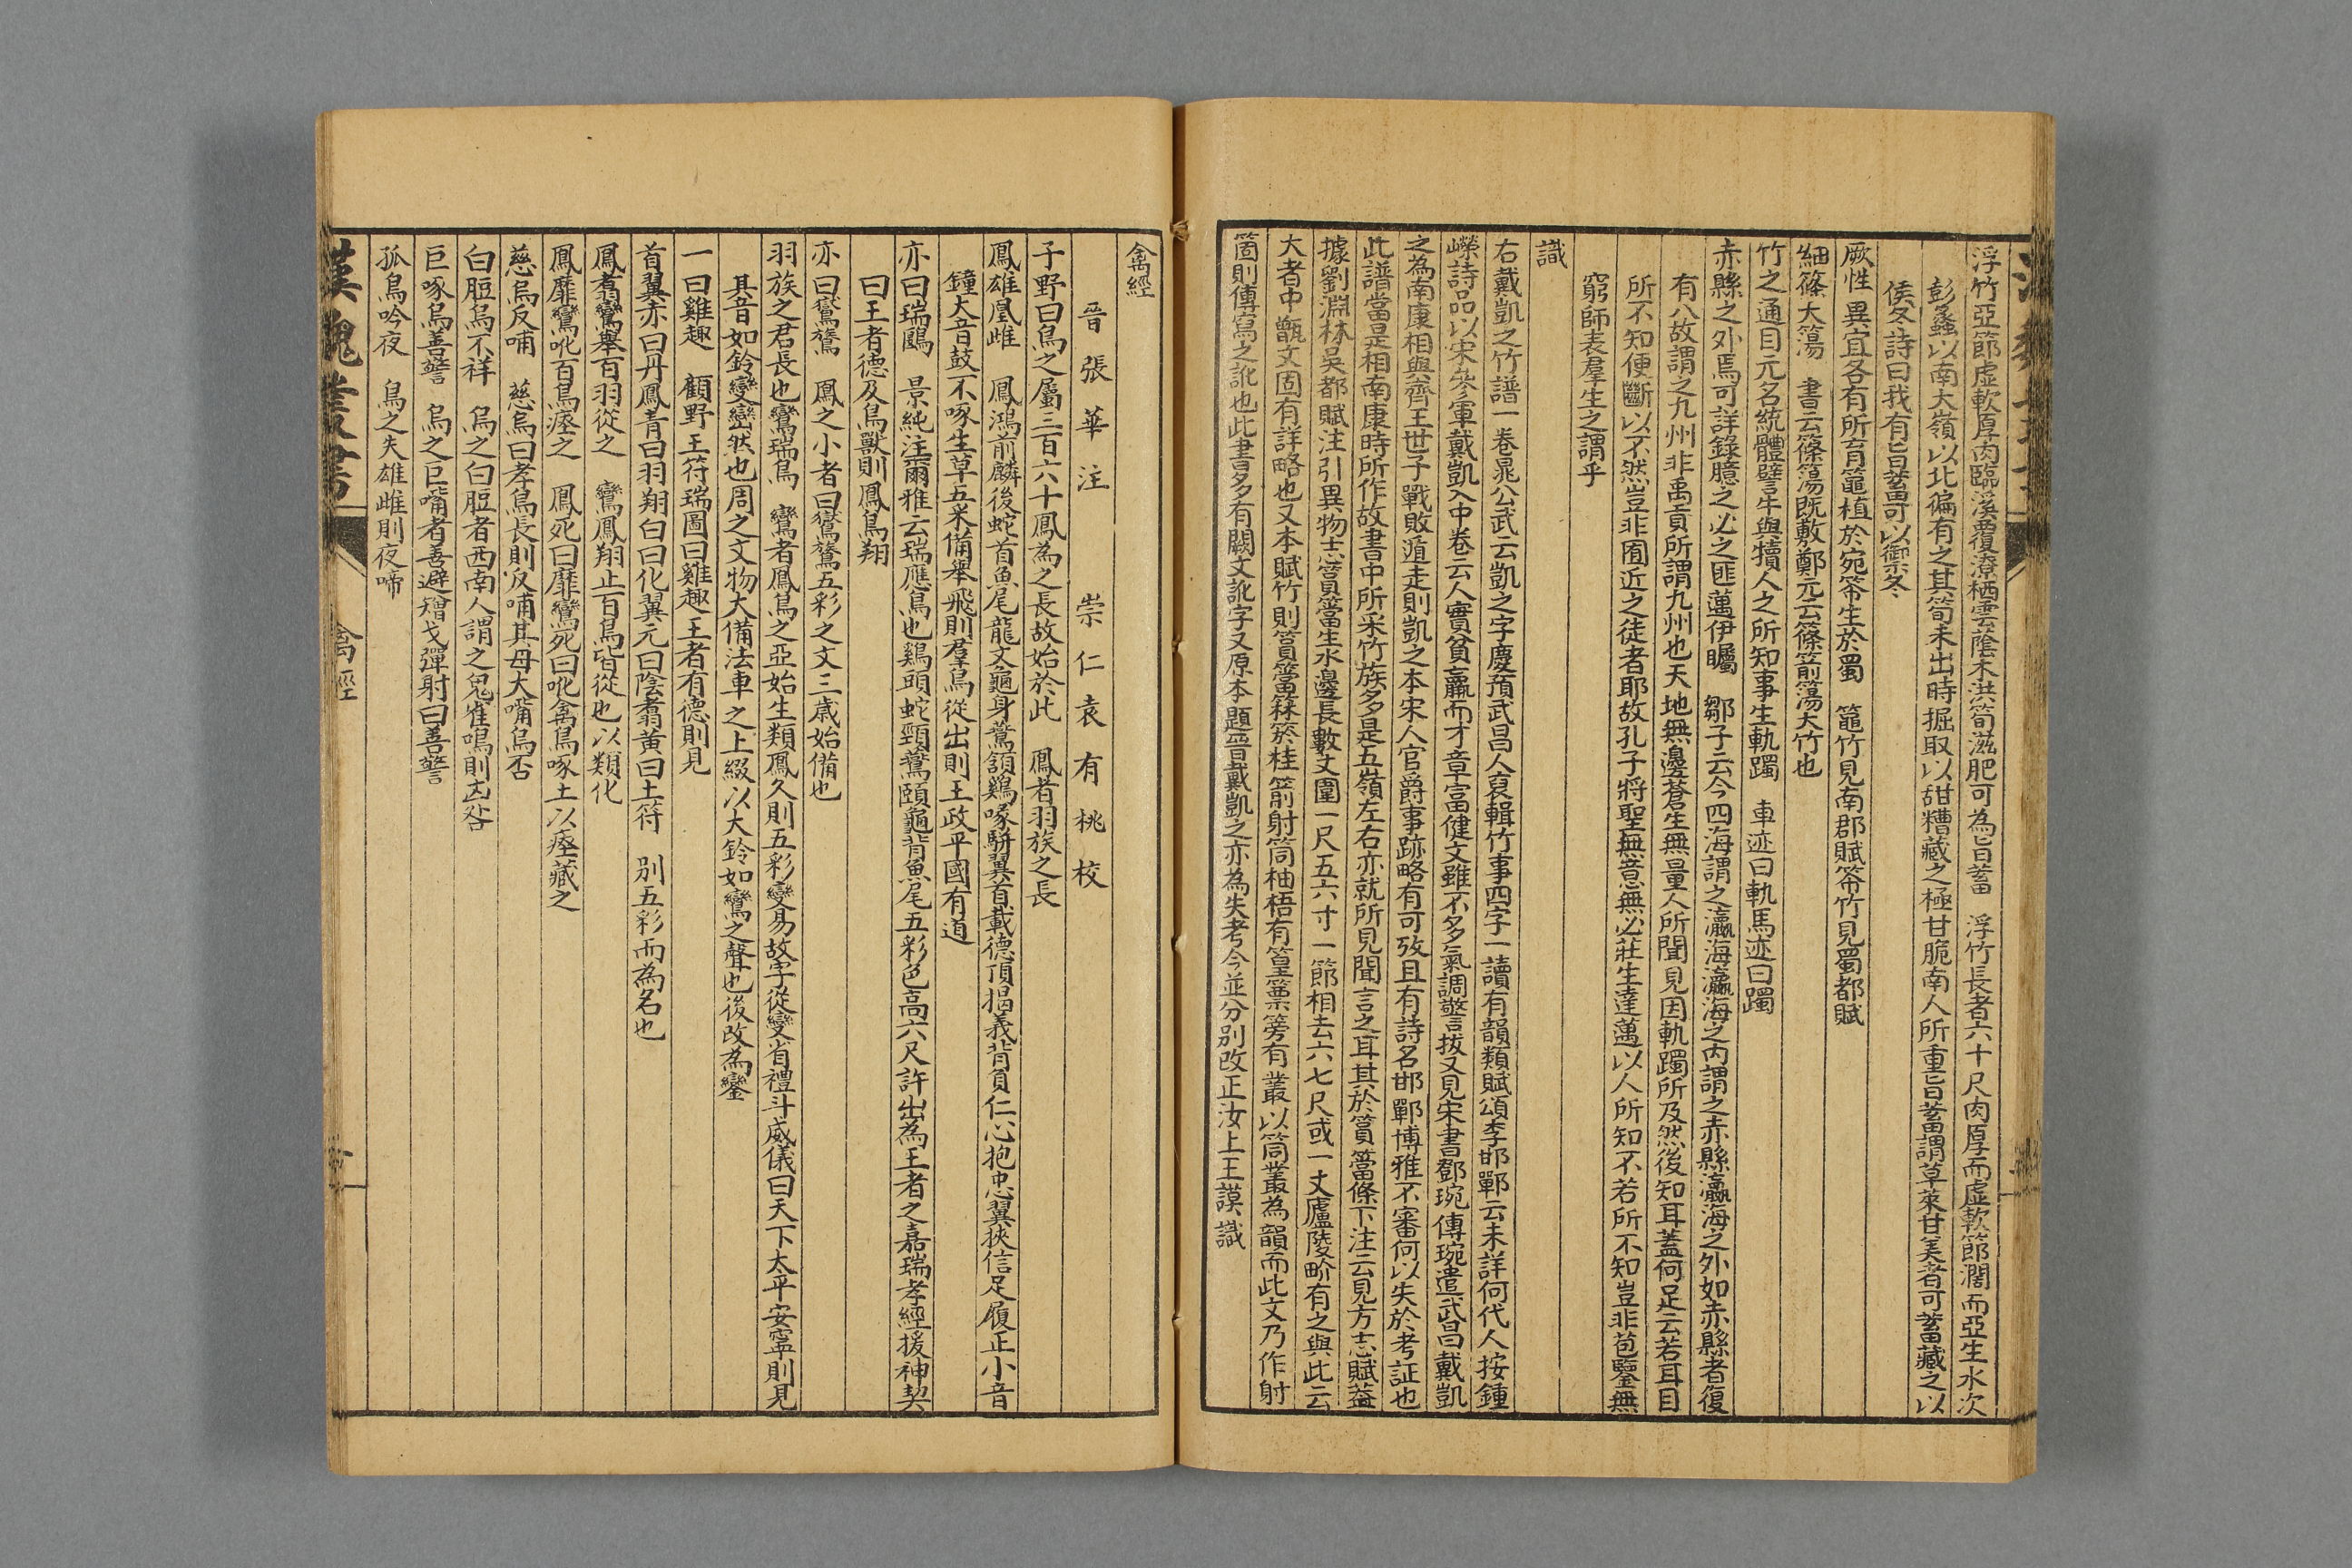 浮竹亞節虛軟厚肉臨溪覆潦栖雲蔭木洪筍滋肥可為旨蓄　浮竹長者六十尺肉厚而虛軟節濶而亞生水次
彭蠡以南大嶺以北徧有之其筍未出時掘取以甜糟藏之極甘脆南人所重旨蓄謂草萊甘美者可蓄藏之以
侯冬詩曰我有旨蓄可以禦冬
厥性異宜各有所育䈏植於宛䇹生於蜀　䈏竹見南郡賦䇹竹見蜀都賦
細篠大簜　書云篠簜既敷鄭元云篠箭簜大竹也
竹之通目元名統體譬牛與犢人之所知事生軌躅　車迹曰軌馬迹曰躅
赤縣之外焉可詳錄臆之必之匪邁伊矚　鄒子云今四海謂之瀛海瀛海之內謂之赤縣瀛海之外如赤縣者復
有八故謂之九州非禹貢所謂九州也天地無邊蒼生無量人所聞見因軌躅所及然後知耳蓋何足云若耳目
所不知便斷以不然豈非囿近之徒者耶故孔子將聖無意無必莊生達邁以人所知不若所不知豈非苞鑒無
窮師表羣生之謂乎
識
右戴凱之竹譜一卷晁公武云凱之字慶預武昌人裒輯竹事四字一讀有韻類賦頌李邯鄲云未詳何代人按鍾
嶸詩品以宋參軍戴凱入中卷云人實貧羸而才章富健文雖不多氣調警拔又見宋書鄧琬傳琬遣武昌戴凱
之為南康相與齊王世子戰敗遁走則凱之本宋人官爵事跡略有可攷且有詩名邯鄲博雅不審何以失於考証也
此譜當是相南康時所作故書中所采竹族多是五嶺左右亦就所見聞言之耳其於篔簹條下注云見方志賦葢
據劉淵林吳都賦注引異物志篔簹生水邊長數丈圍一尺五六寸一節相去六七尺或一丈廬陵畍有之與此云
大者中甑文固有詳略也又本賦竹則篔簹箖箊桂箭射筒柚梧有篁篻簩有叢以筒叢為韻而此文乃作射
箇則傳寫之訛也此書多有闕文訛字又原本題晉戴凱之亦為失考今並分別改正汝上王謨識
禽經
晉張華注　　崇仁袁有桃校
子野曰鳥之屬三百六十鳳為之長故始於此　鳳者羽族之長
鳳雄凰雌　鳳鴻前麟後蛇首魚尾龍文龜身鷰頷鷄喙駢翼首載德頂揭義背負仁心抱忠翼挾信足履正小音
鐘大音鼓不啄生草五采備舉飛則羣鳥從出則王政平國有道
亦曰瑞鷗　景純注爾雅云瑞應鳥也鷄頭蛇頸鷰頤龜背魚尾五彩色高六尺許出為王者之嘉瑞孝經援神契
曰王者德及鳥獸則鳳鳥翔
亦曰鸑鷟　鳳之小者曰鸑鷟五彩之文三歲始備也
羽族之君長也鸞瑞鳥　鸞者鳳鳥之亞始生類鳳久則五彩變易故字從變省禮斗威儀曰天下太平安寧則見
其音如鈴變巒然也周之文物大備法車之上綴以大鈴如鸞之聲也後改為鑾
一曰雞趣　顧野王符瑞圖曰雞趣王者有德則見
首翼赤曰丹鳳青曰羽翔白曰化翼元曰陰翥黃曰土符　別五彩而為名也
鳳翥鸞舉百羽從之　鸞鳳翔止百鳥皆從也以類化
鳳靡鸞吪百鳥瘞之　鳳死曰靡鸞死曰吪禽鳥啄土以瘞藏之
慈烏反哺　慈烏曰孝鳥長則反哺其母大嘴烏否
白脰烏不祥　烏之白脰者西南人謂之鬼雀鳴則凶咎
巨喙烏善警　烏之巨嘴者善避矰弋彈射曰善警
孤鳥吟夜　鳥之失雄雌則夜啼
漢魏叢書
禽經